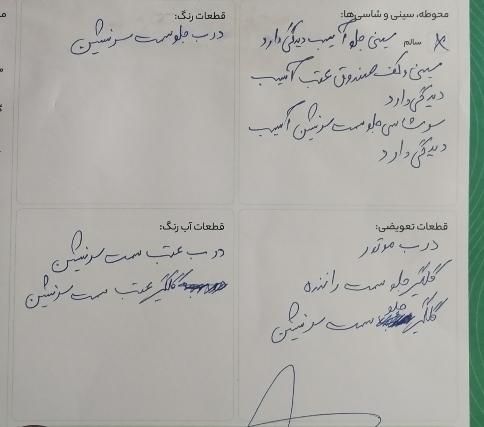 محوطه، سینی و شاسی‌ها:
سالم سینی جلو آسیب دیدگی دارد
سینی و کف صندوق عقب آسیب
دیدگی دارد
سرشاسی جلو سمت سرنشین آسیب
دیدگی دارد
قطعات رنگ:
درب جلو سمت سرنشین
قطعات تعویضی:
درب موتور
گلگیر جلو سمت راننده
گلگیر جلو سمت سرنشین
قطعات آب رنگ:
درب عقب سمت سرنشین
گلگیر عقب سمت سرنشین